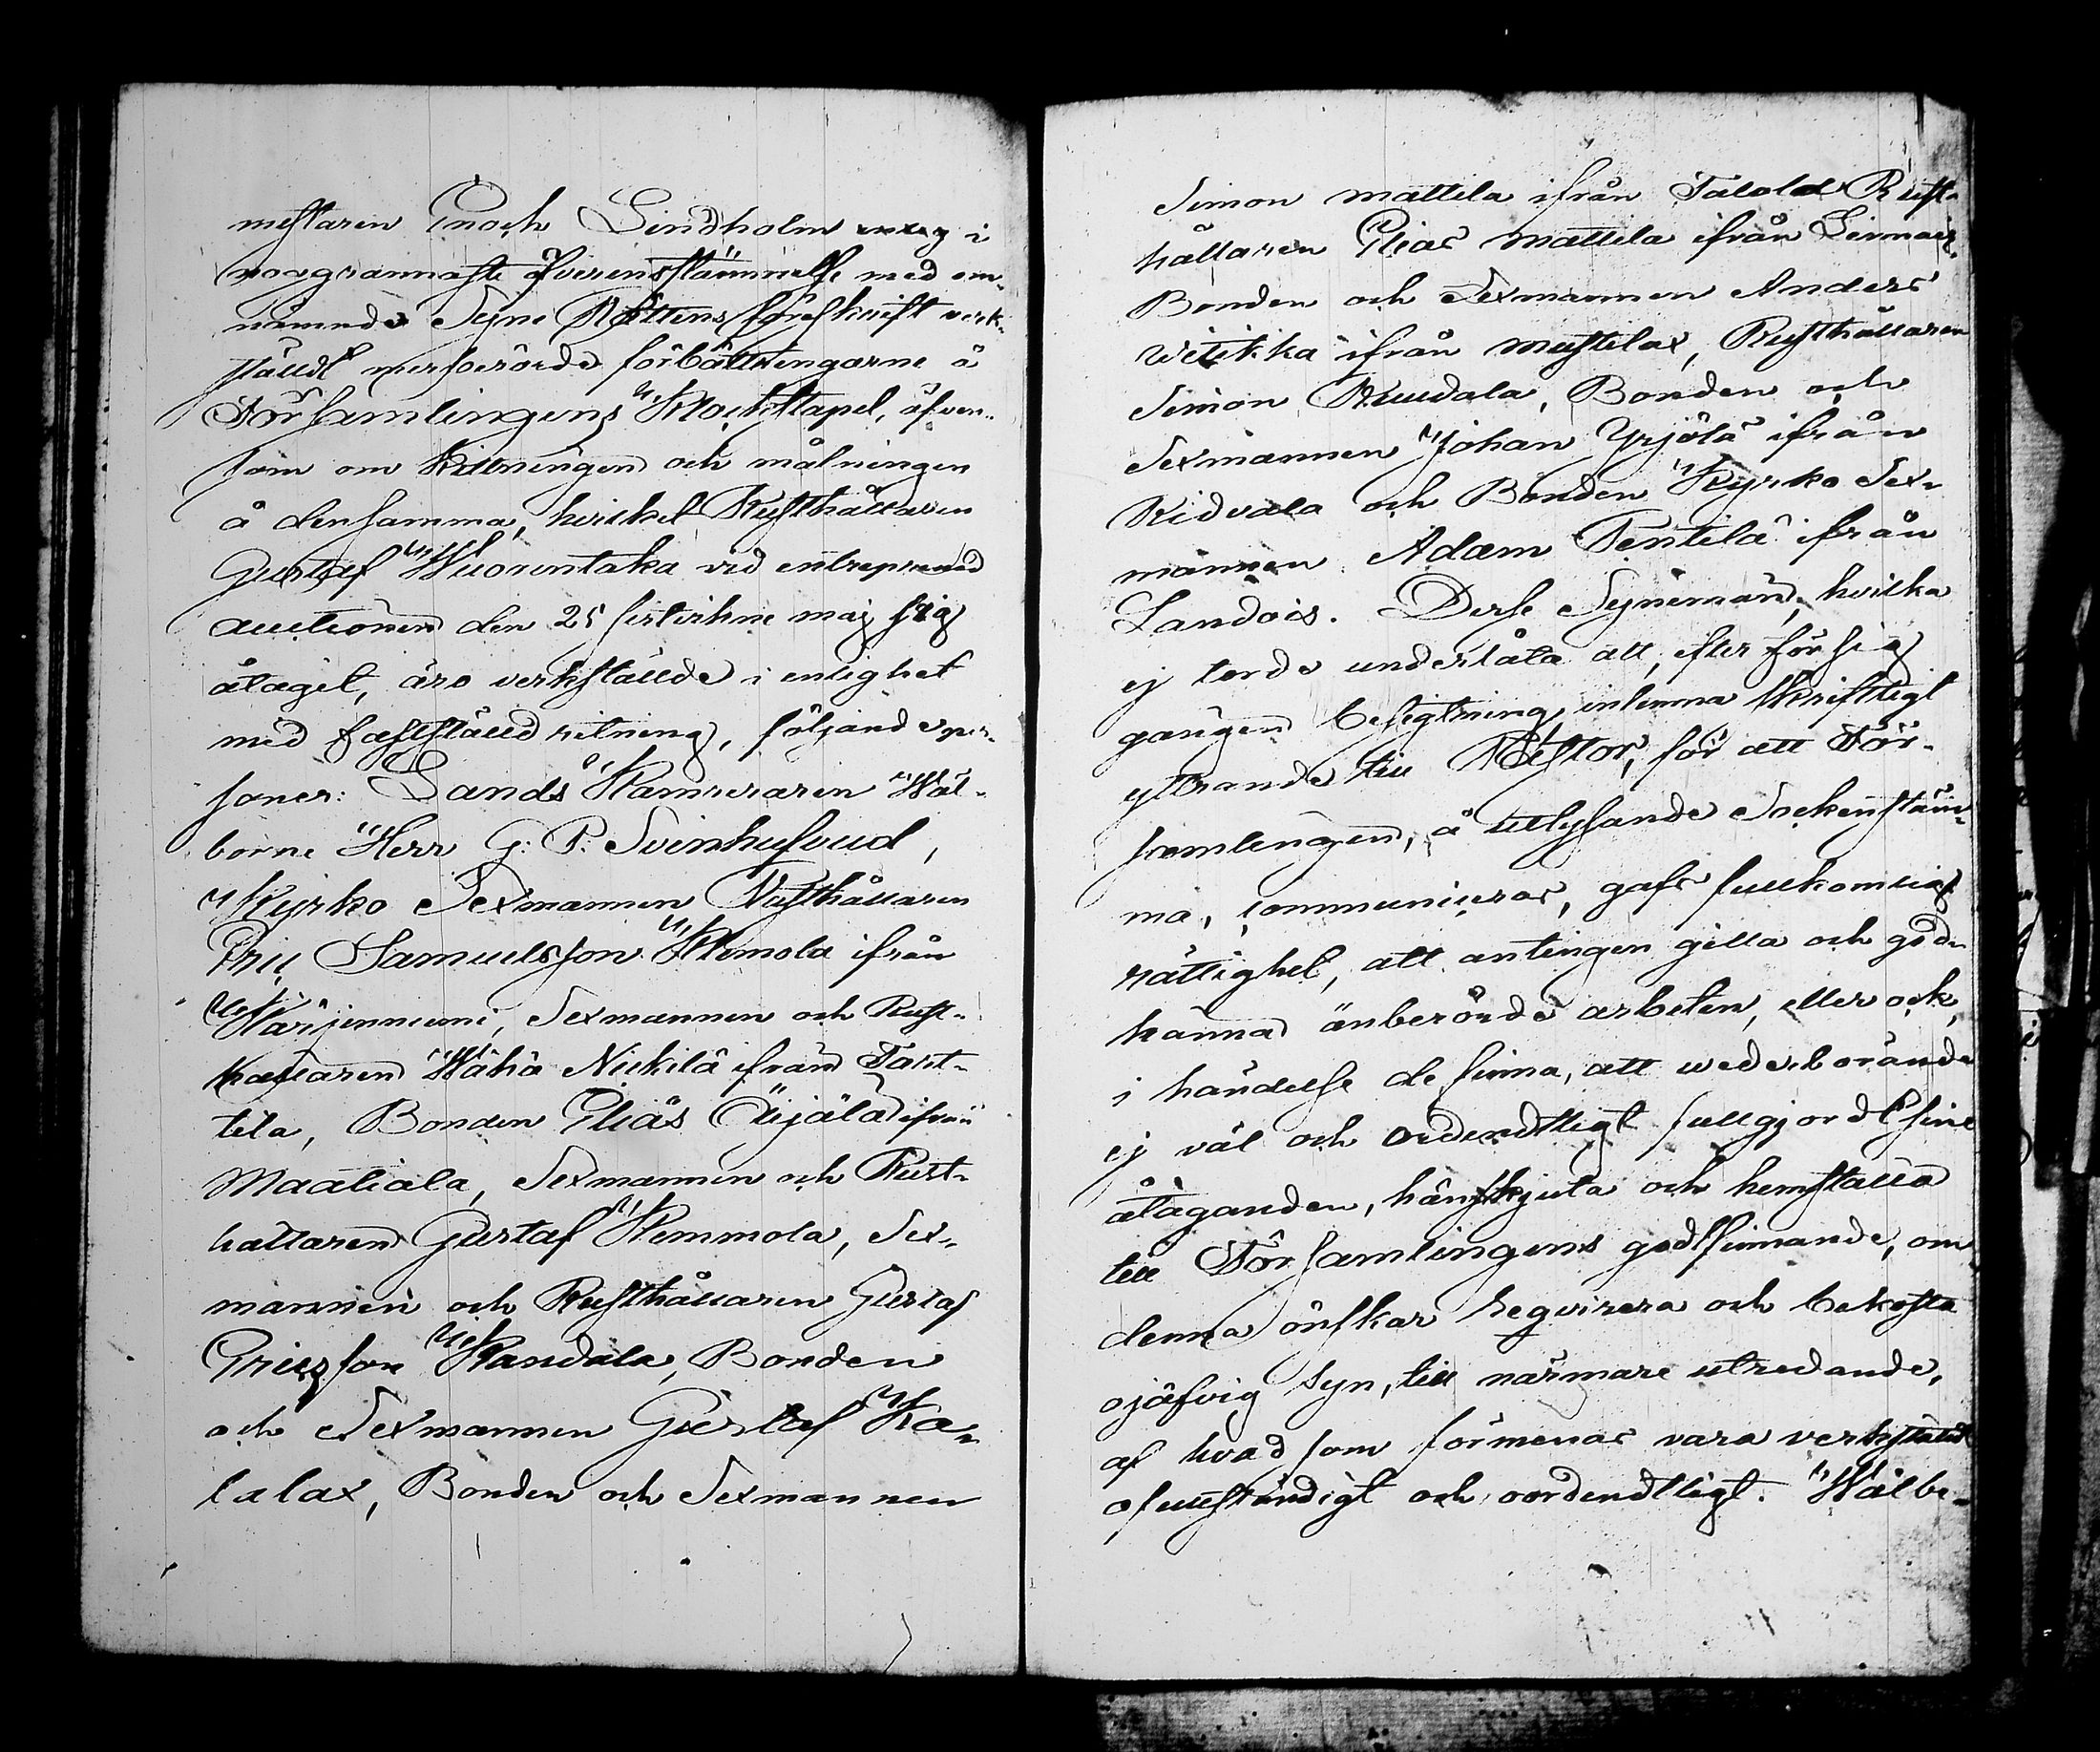 mestaren Enoch Lindholm i
noggrannaste öfverensstämmelse med om-
nämnde Syne Rättens föreskrift verk-
ställdt merberörde förbättringarne å
Församlingens Klockstapel, äfven-
som om Rittningen och målningen
å densamma, hvilket Rusthållaren
Gustaf Wuorentaka vid entreprenad
auctionen den 25 sistvikne maj sig
åtagit, äro verkställde i enlighet
med fastställd ritning, följande per-
soner: Lands Kamreraren Wäl-
borne Herr G: P. Svinhufvud,
Kyrko Sexmannen Rusthållaren
Eric Samuelsson Hemola ifrån
Harjunniemi, Sexmannen och Rust-
hållaren Wähä Nickilä ifrån Tant-
tila, Bonden Elias Äijälä ifrån
Maatiala, Sexmannen och Rust-
hållaren Gustaf Hemmola, Sex-
mannen och Rusthållaren Gustaf
Ericsson Kandala, Bonden
och Sexmannen Gustaf Ka-
lalax, Bonden och Sexmannen
Simon Mattila ifrån Talola Rust-
hållaren Elias Mattila ifrån
Bonden och Sexmannen Anders
Witikka ifrån Mustilax, Rusthållaren
Simon Ruudala, Bonden och
Sexmannen Johan Yrjölä ifrån
Kidvala och Bonden Kyrko Sex-
mannen Adam Pentilä ifrån
Landois. Desse Synemän, hvilka
ej torde underlåta att, efter försig
gången besigtning inlemna skriftligt
yttrande till Pastor, för att För-
samlingen, å utlysande Sockenstäm-
ma, communiceras, gafs fullkomlig
rättighet, att antingen gilla och god-
känna änberörde arbeten, eller ock,
i händelse de finna, att wederbörande
ej väl och ordendtligt fullgjordt sine
åtaganden, hänskjuta och hemställa
till Församlingens godtfinnande, om
denna önskar reqvirera och bekosta
ojäfvig syn, till närmare utredande,
af hvad som förmenas vara verkställdt
ofullständigt och oordendtligt. Wälbe-